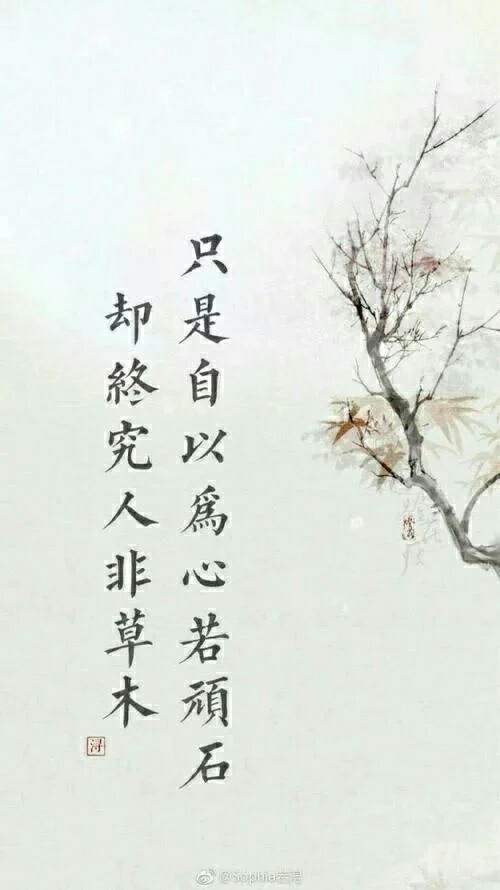 只是自以為心若頑石
却終究人非草木
浔
@Sophia岩浔